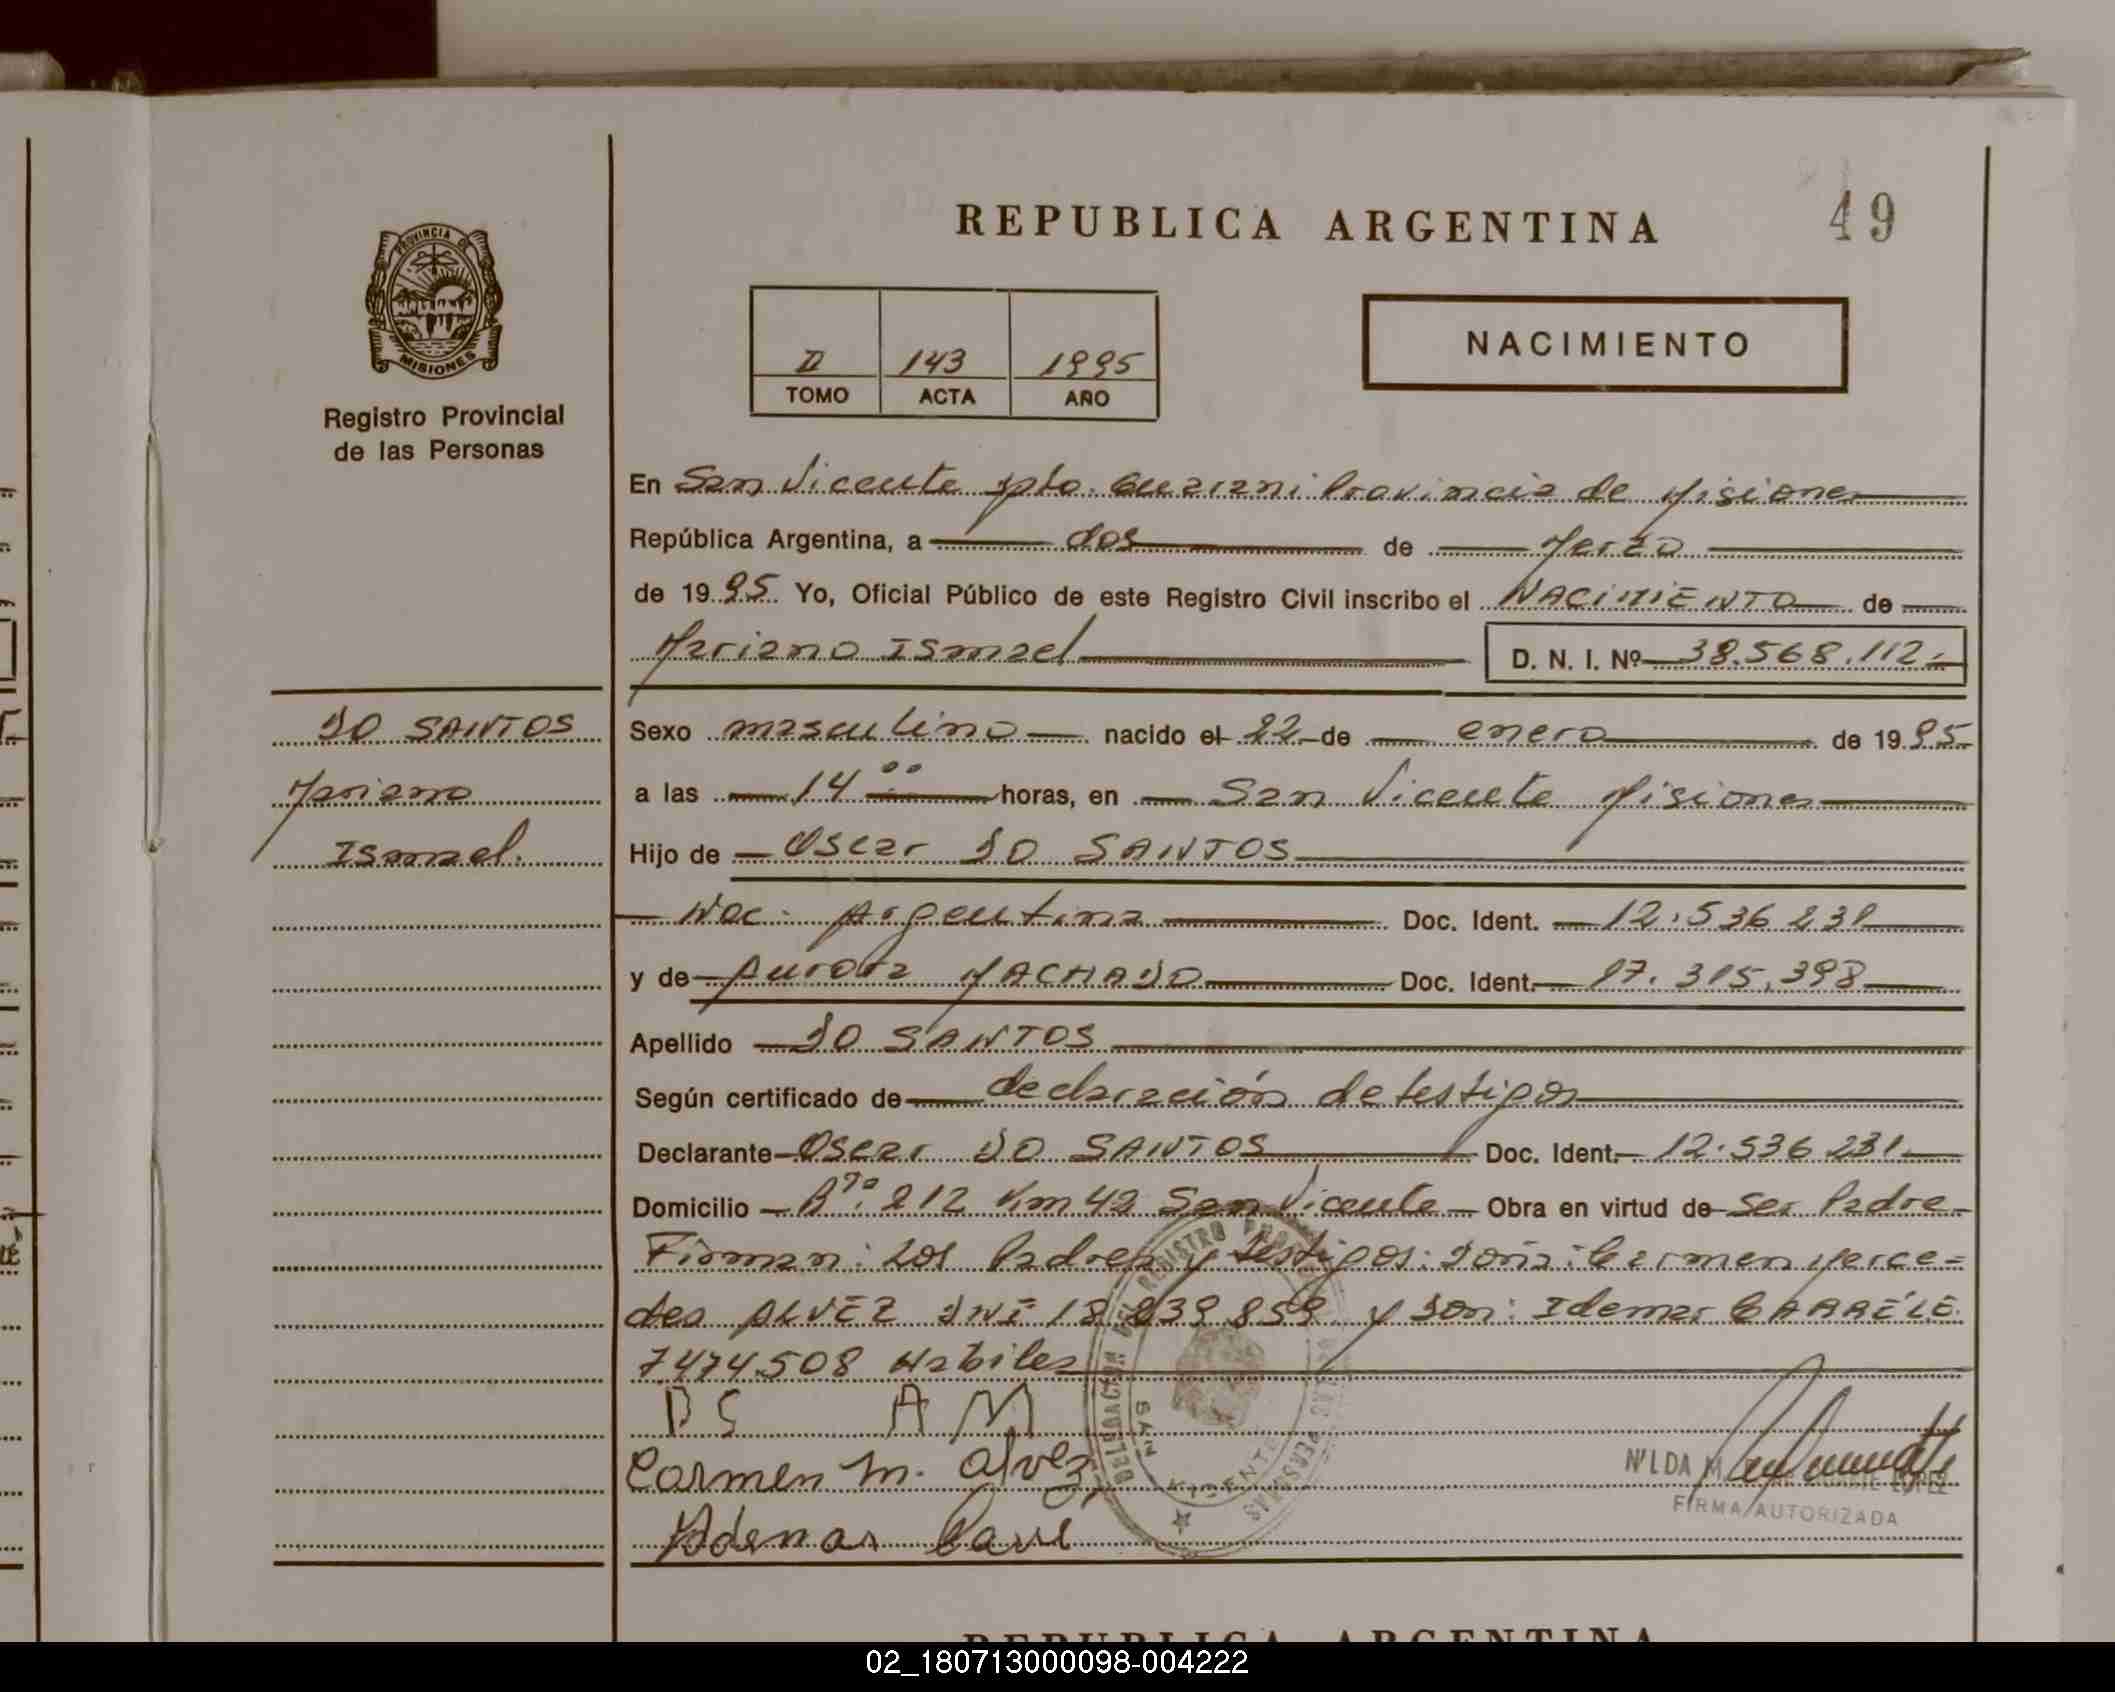 49
REPUBLICA ARGENTINA
PROVINCIA DE
MISIONES
Registro Provincial
de las Personas
II 143 1995
TOMO ACTA AÑO
NACIMIENTO
En San Vicente Dpto. Guarani Provincia de Misiones
República Argentina, a dos de Marzo
de 1995 Yo, Oficial Público de este Registro Civil inscribo el NACIMIENTO de
Mariano Ismael D. N. I. Nº 38.568.112.-
DO SANTOS
Mariano
Ismael.
Sexo masculino nacido el 22 de enero de 1995
a las 14 00 horas, en San Vicente Misiones
Hijo de Oscar DO SANTOS
Nac. Argentina Doc. Ident. 12.536 231
y de Aurora MACHADO Doc. Ident. 17.315.398
Apellido DO SANTOS
Según certificado de declaración de testigos
Declarante Oscar DO SANTOS Doc. Ident. 12.536 231
Domicilio 212 Km 42 San Vicente Obra en virtud de Ser Padre
Firman: Los Padres y testigos: Doña: Carmen Merce=
des ALVEZ DNI 18 239 859 y Don: Idemar
7474508 Habiles
DS AM
Carmen M. Alvez
DELEGACION DEL REGISTRO
PERSONAS
SAN VICENTE
NILDA M. LOPEZ
FIRMA AUTORIZADA
REPUBLICA ARGENTINA
02_180713000098-004222